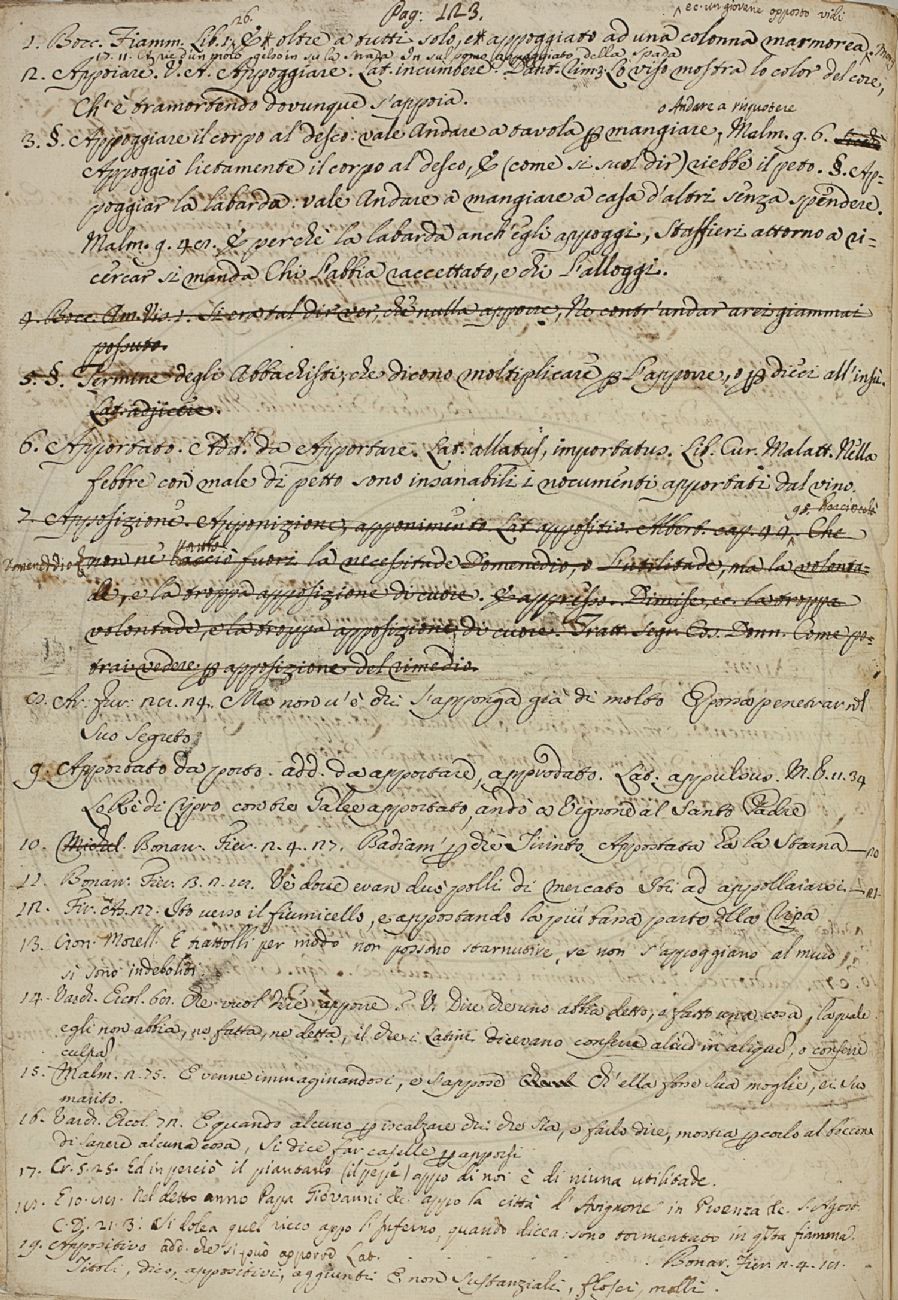 Pag: 123.
ec. un giovene opposto vidi
26.
1. Bocc. Fiamm. Lib. 1. Et oltre a tutti solo, et appoggiato ad una colonna marmorea.
in su la strada In sul pome appoggiato della spada
2. Appoiare. V. A. Appoggiare. Lat. incumbere. Dant. Lo viso mostra lo color del core,
Ch' è tramortendo dovunque s'appoia.
o Andare a riscuotere
3. §. Appoggiare il corpo al desco: vale Andare a tavola p mangiare, Malm. 9. 6.
Appoggiò lietamente il corpo al desco, E (come si suol dir) riebbe il peto. §. Ap=
poggiar la labarda: vale Andare a mangiare a casa d'altri senza spendere.
Malm. 9. E perchè la labarda anch'egli appoggi, Staffieri attorno a ri=
cercar si manda Chi l'abbia raccettato, e chi l'alloggi.
4. Bocc. Am. Vis. 1. Si era tal dir ver, che nulla apporre, Nè contr'andar avei giammai
possuto.
5. §. Termine degli Abbachisti, che dicono moltiplicare p l'apporre, o p dieci all'insù.
Lat. adjicere.
6. Apportato. Add. da Apportare. Lat. allatus, importatus. Lib. Cur. Malatt. Nella
febbre con male di petto sono insanabili i nocumenti apportati dal vino.
7. Apposizione. Apponizione, apponimento. Lat. appositio. Albert. cap. 44. Che
non ne caccio fuori la necessitade Domenedio, o l'utilitade, ma la volonta-
de, e la troppa apposizione di cuore. E appresso. Dimise, ec. la troppa
volontade, e la troppa apposizione di cuore. Tratt. segr. Cos. Donn. Come po-
trai vedere p apposizione del rimedio.
8. Ar. Fur. Ma non v'è chi s'apponga già di molto E possa penetrar nel
suo segreto
9. Apportato da porto. add. da apportare, approdato. Lat. appulsus. M. V. 11. 34
Lo Re di Cipro con tre Galee apportato, andò a Vignone al Santo Padre
10. Bonar. Fier. 2. 4. 27. Badiam' p che Tirinto Appostata ha la Starna
11. Bonar. Fier. Ve dove eran duo polli di mercato Iti ad appollaiarsi.
12. Fir. As. 27. Ito verso il fiumicello, e appostando la più bassa parte della Ripa
13. Cron. Morell. E trattolli per modo non possono starnutire, se non s'appoggiano al muro
si sono indeboliti.
14. Varch. Ercol. Che vuol dire apporre? V. Dire che uno abbia detto, o fatto una cosa, la quale
egli non abbia, nè fatta, nè detta, il che i Latini dicevano conferre aliquid in aliquem, o conferre
culpam
15. Malm. 2. 75. E venne immaginandosi, e s'appose Ch'ella fosse sua moglie, ei suo
marito.
16. Varch. Ercol. 72. E quando alcuno p iscalzare chi che sia, e farlo dire, mostra p corlo al boccone
di sapere alcuna cosa, si dice far caselle p apporsi
17. Cr. 5. 25. Ed in perciò il piantarlo (il pepe) appo di noi è di niuna utilitade.
18. Nel detto anno Papa Giovanni &c. appo la città d'Avignone in Proenza &c. S. Agost.
C. D. 21. 3. Si dolea quel ricco appo l'Inferno, quando dicea: sono tormentato in qsta fiamma.
19. Appositivo add. che si può apporre Lat. Bonar. Fier. 2. 4.
Titoli, dico, appositivi, aggiunti E non sustanziali, flosci, molli.